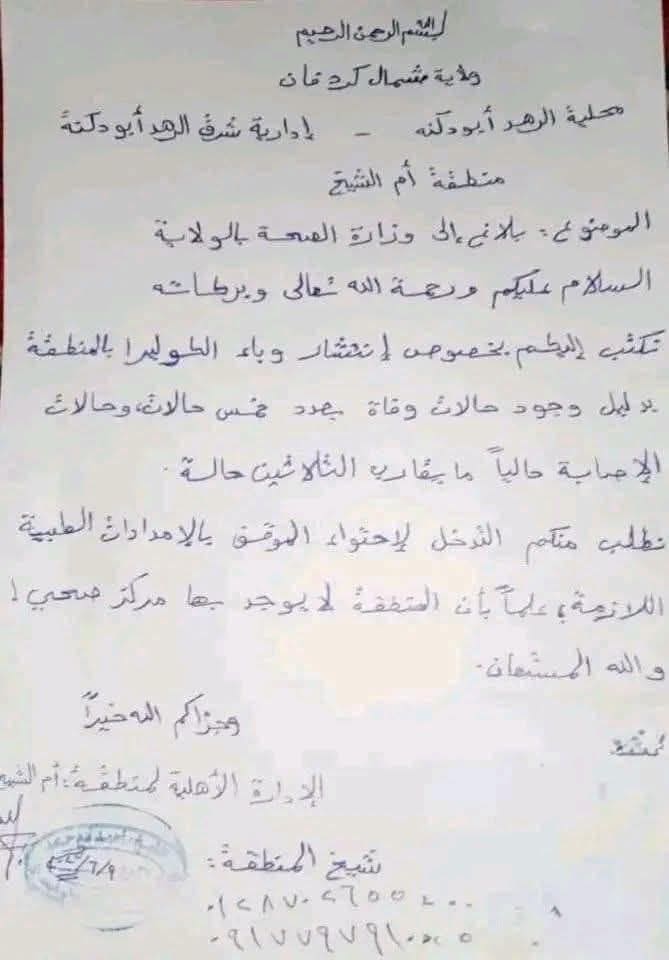 بسم الله الرحمن الرحيم
ولاية شمال كردفان
محلية الرهد أبودكنه - إدارية شرق الرهد أبودكنة
منطقة أم الشيخ
الموضوع: بلاغ إلى وزارة الصحة بالولاية
السلام عليكم ورحمة الله تعالى وبركاته
نكتب إليكم بخصوص إنتشار وباء الكوليرا بالمنطقة
بدليل وجود حالات وفاة بعدد خمس حالات، وحالات
الإصابة حالياً ما يقارب الثلاثين حالة.
نطلب منكم التدخل لإحتواء الموقف بالإمدادات الطبية
اللازمة، علماً بأن المنطقة لا يوجد بها مركز صحي!
والله المستعان.
وجزاكم الله خيراً
الإدارة الأهلية لمنطقة: أم الشيخ
شيخ المنطقة: